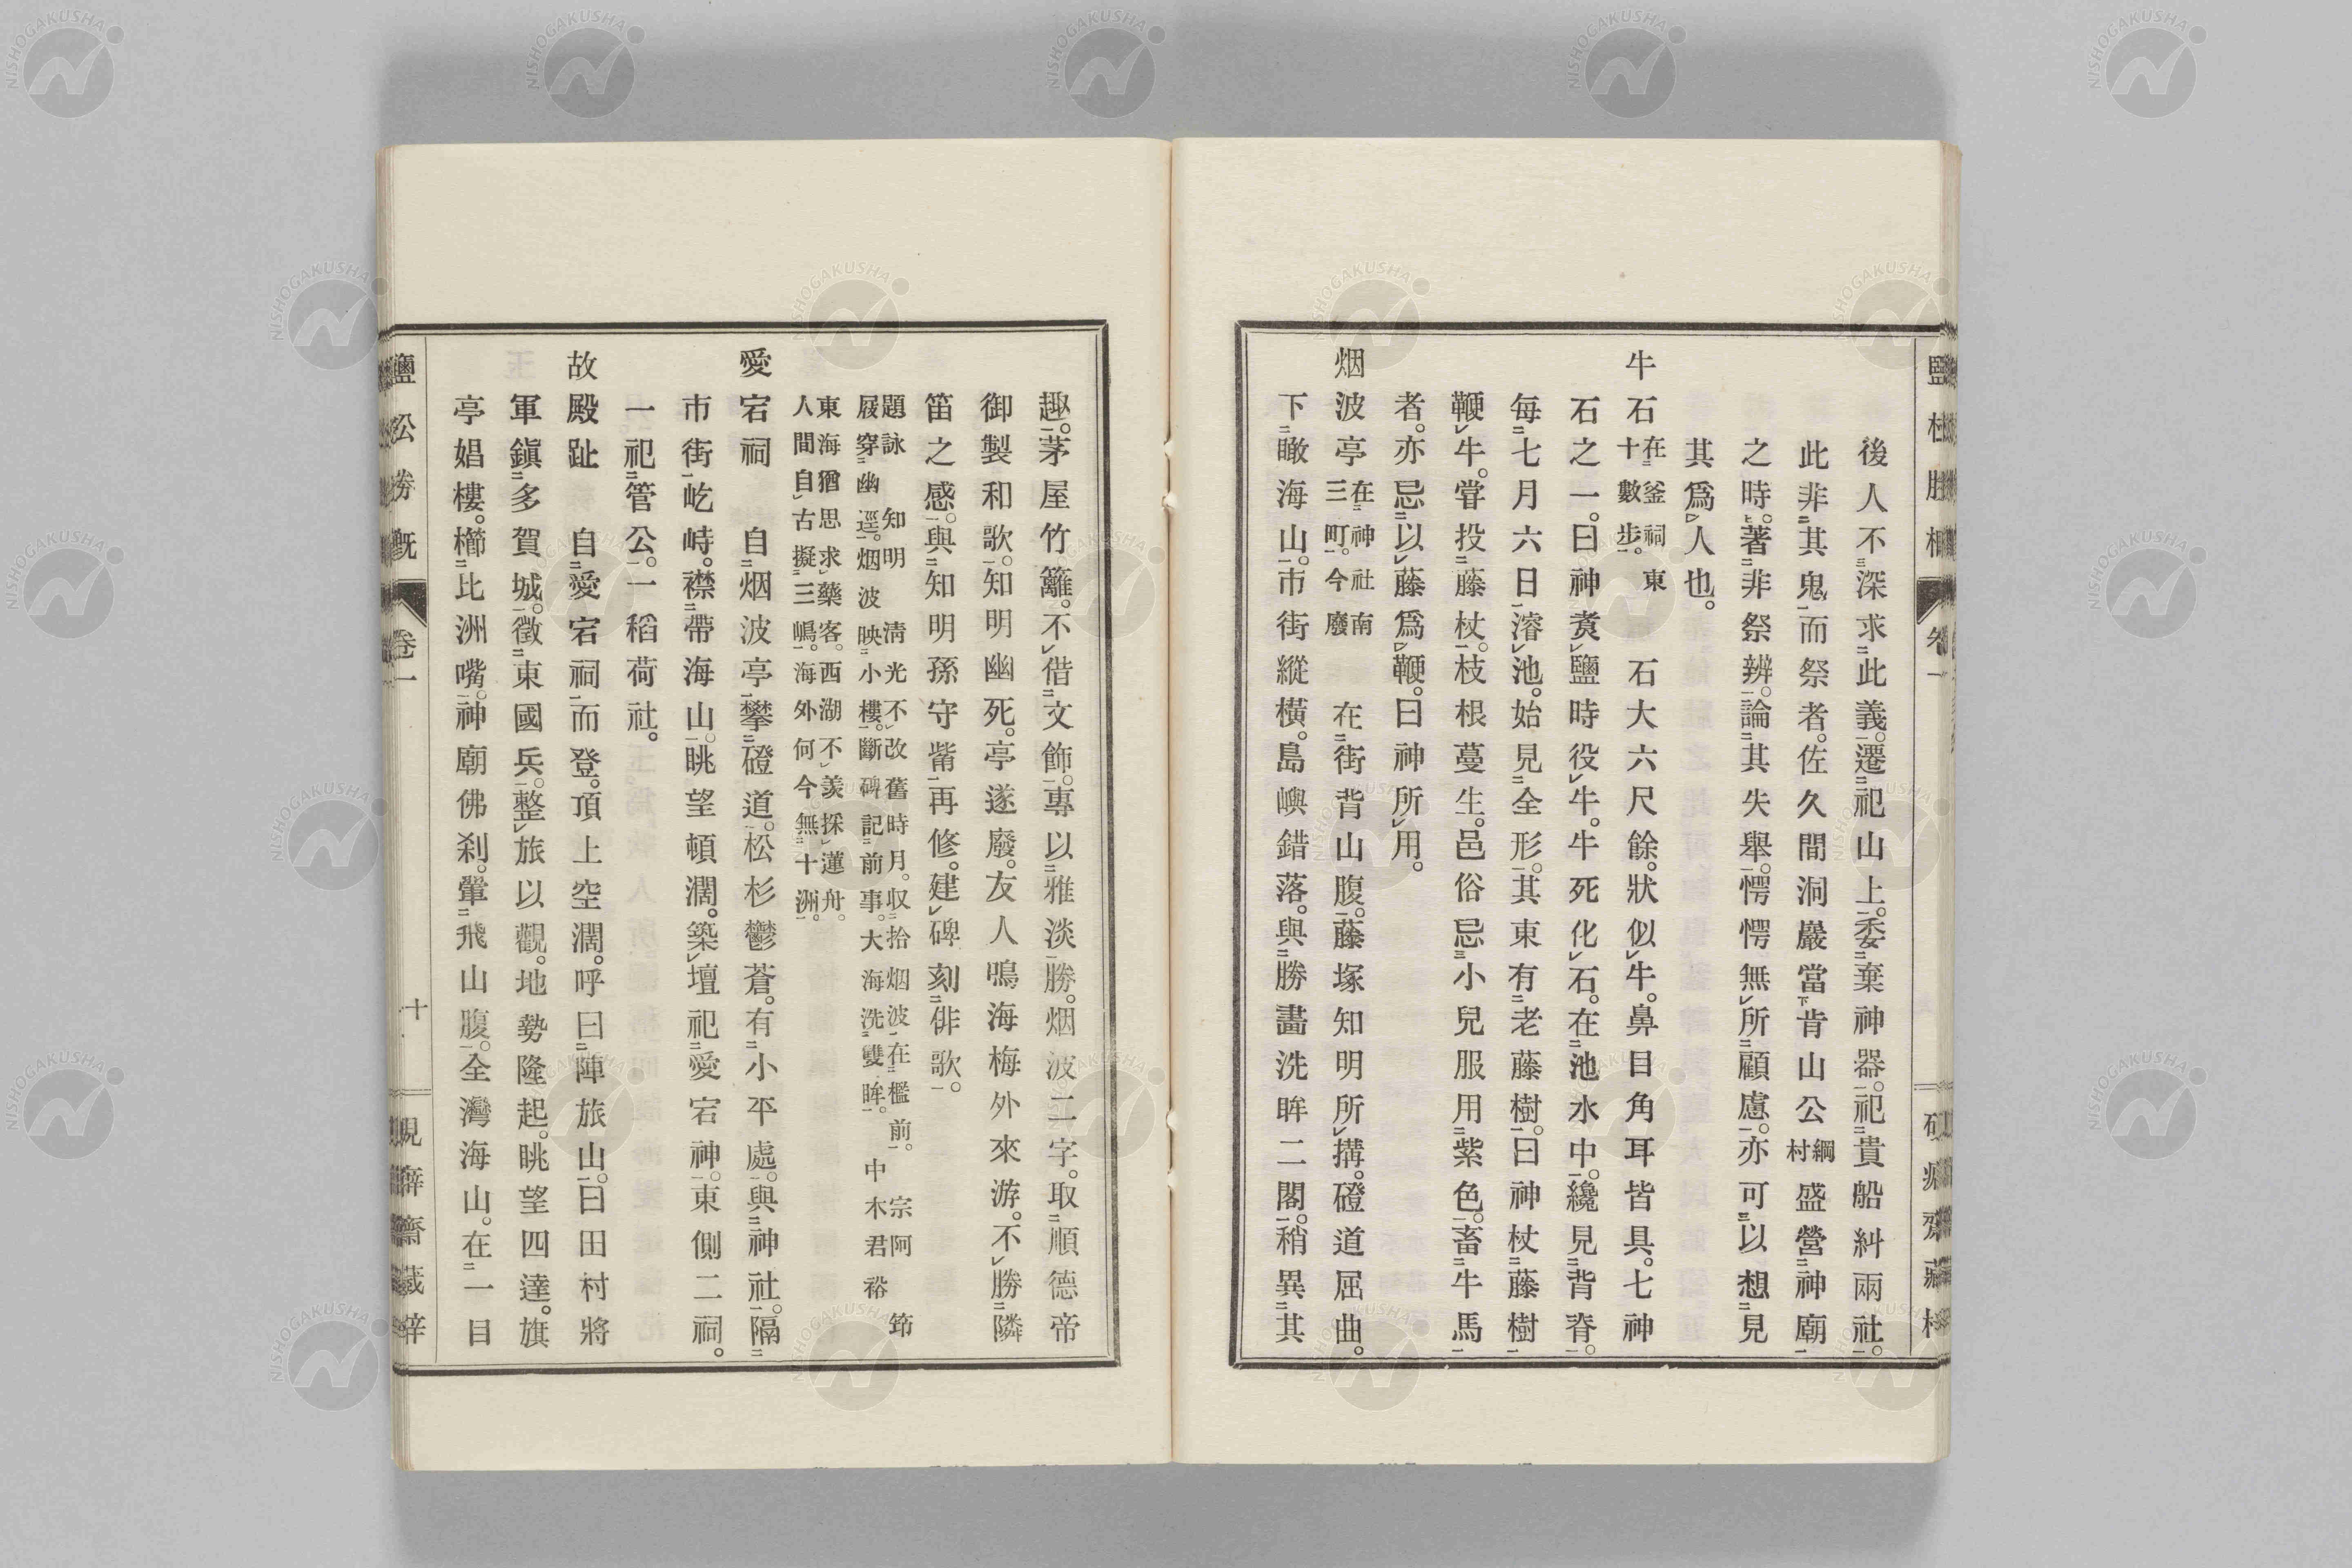 後人不深求此義。遷祀山上。委棄神器。祀貴船糾兩社。
此非其鬼而祭者。佐久間洞巖當肯山公綱村盛營神廟
之時。著非祭辨。論其失舉。愕愕無所顧慮。亦可以想見
其爲人也。
牛石在釜祠東十數步。石大六尺餘。狀似牛。鼻目角耳皆具。七神
石之一。曰神煑鹽時役牛。牛死化石。在池水中。纔見背脊。
每七月六日濬池。始見全形。其東有老藤樹。曰神杖藤樹
鞭牛。甞投藤杖。枝根蔓生。邑俗忌小兒服用紫色。畜牛馬
者。亦忌以藤爲鞭。曰神所用。
烟波亭在神社南三町。今廢在街背山腹。藤塚知明所搆。磴道屈曲。
下瞰海山。市街縱橫。島嶼錯落。與勝畵洗眸二閣。稍異其
趣。茅屋竹籬。不借文飾。專以雅淡勝。烟波二字。取順德帝
御製和歌。知明幽死。亭遂廢。友人鳴海梅外來游。不勝隣
笛之感。與知明孫守訾再修。建碑刻俳歌。
題詠 知明 淸光不改舊時月。収拾烟波在檻前。 宗阿 筇
屐穿幽逕。烟波映小樓。斷碑記前事。大海洗雙眸。 中木君裕
東海猶思求藥客。西湖不羨採蓮舟。
人間自古擬三嶋。海外何今無十洲。
愛宕祠 自烟波亭攀磴道。松杉鬱蒼。有小平處。與神社隔
市街屹峙。襟帶海山。眺望頓濶。築壇祀愛宕神。東側二祠。
一祀管公。一稻荷社。
故殿趾 自愛宕祠而登。頂上空濶。呼曰陣旅山。曰田村將
軍鎭多賀城。徵東國兵。整旅以觀。地勢隆起。眺望四達。旗
亭娼樓。櫛比洲嘴。神廟佛刹。翬飛山腹。全灣海山。在一目
鹽松勝概 卷一 十